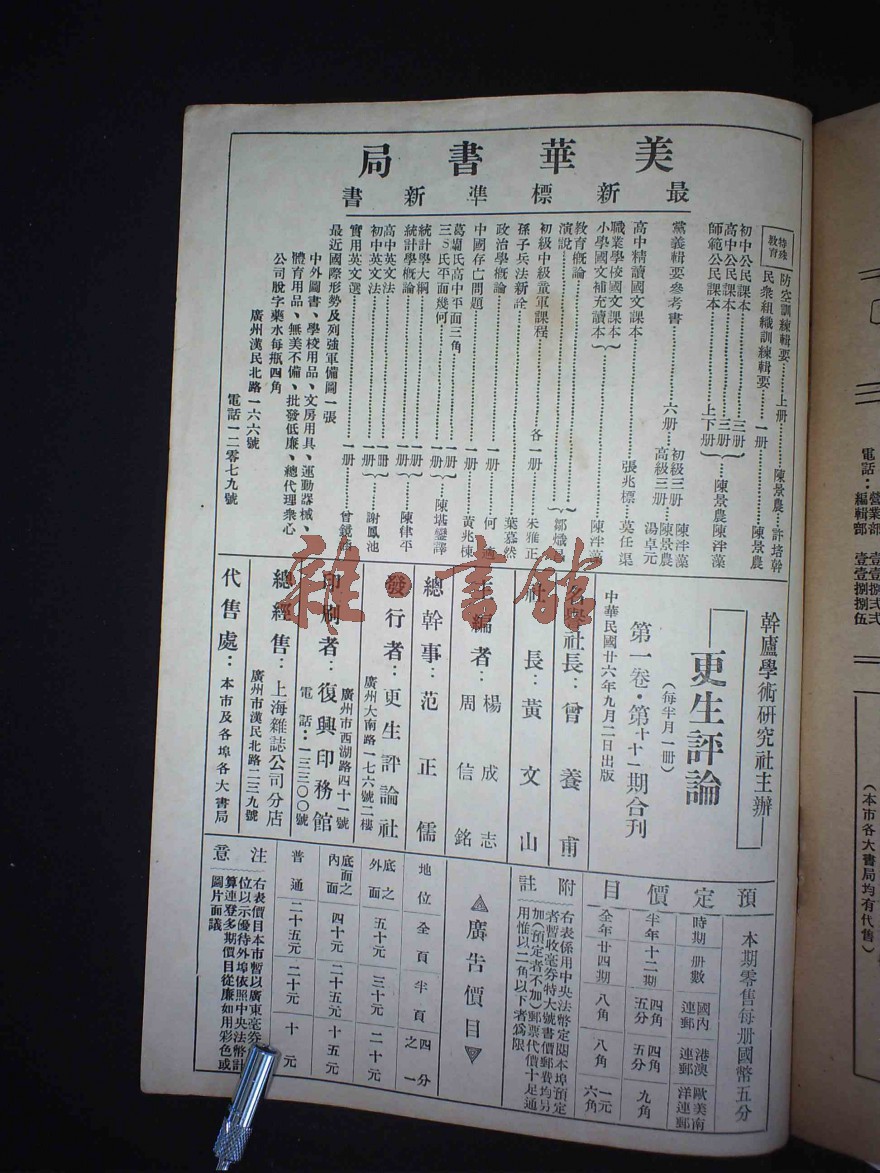 美華書局
最新標準新書
特殊教育
防空訓練輯要……上册……陳景農 許培幹
民衆組織訓練輯要……一册……陳景農
初中公民課本……三册
高中公民課本……三册……陳景農 陳泮藻
師範公民課本……上下册
黨義輯要參考書……六册 初級三册 高級三册 陳泮藻 陳景農 湯卓元
高中精讀國文課本……張兆標 莫任渠
職業學校國文課本
小學國文補充讀本……陳泮藻
教育概論
演説……鄒熾
初級中級童軍課程……各一册……朱雅正
孫子兵法新詮……葉慕然
政治學概論……一册……何
中國存亡問題……一册……黃兆棟
葛蘭氏高中平面三角
三S氏平面幾何……一册……陳堪鑾譯
統計學大綱……一册
統計學概論……一册……陳律平
高中英文法……一册
初中英文法……一册……謝鳳池
實用英文選……一册……曾鏡
最近國際形勢及列強軍備圖一張
中外圖書、學校用品、文房用具、運動器械、
體育用品、無美不備、批發低廉、總代理衆心
公司脫字藥水每瓶四角
廣州漢民北路一六六號
電話一二零七九號
幹廬學術研究社主辦
更生評論
(每半月一册)
第一卷·第十十一期合刊
中華民國廿六年九月二日出版
名譽社長：曾養甫
社長：黃文山
主編者：楊成志
周信銘
總幹事：范正儒
發行者：更生評論社
廣州大南路一七六號二樓
印刷者：復興印務館
廣州市西湖路四十一號
電話：一三三〇〇號
總經售：上海雜誌公司分店
廣州市漢民北路二三九號
代售處：本市及各埠各大書局
預定價目
本期零售每册國幣五分
時期 册數 國內連郵 港澳連郵 歐美南洋連郵
半年 十二期 四角五分 四角五分 九角
全年 廿四期 八角 八角 一元六角
附註
右表係用中央法幣定閱本埠預定
者暫收毫券特大號書價郵費均另
加(預定者不加)郵票代價十足通
用惟以二角以下者爲限
廣告價目
地位 全頁 半頁 四分之一
底之外面 五十元 三十元 二十元
底面之內面 四十元 二十五元 十五元
普通 二十五元 二十元 十元
注意
右表價目本市暫以廣東毫券
位以示優待外埠依照中央法幣計
算連登多期價目從廉如用彩色或
圖片面議
電話：營業部 壹壹捌弍弍
編輯部 壹壹捌捌伍
(本市各大書局均有代售)
雜·書館